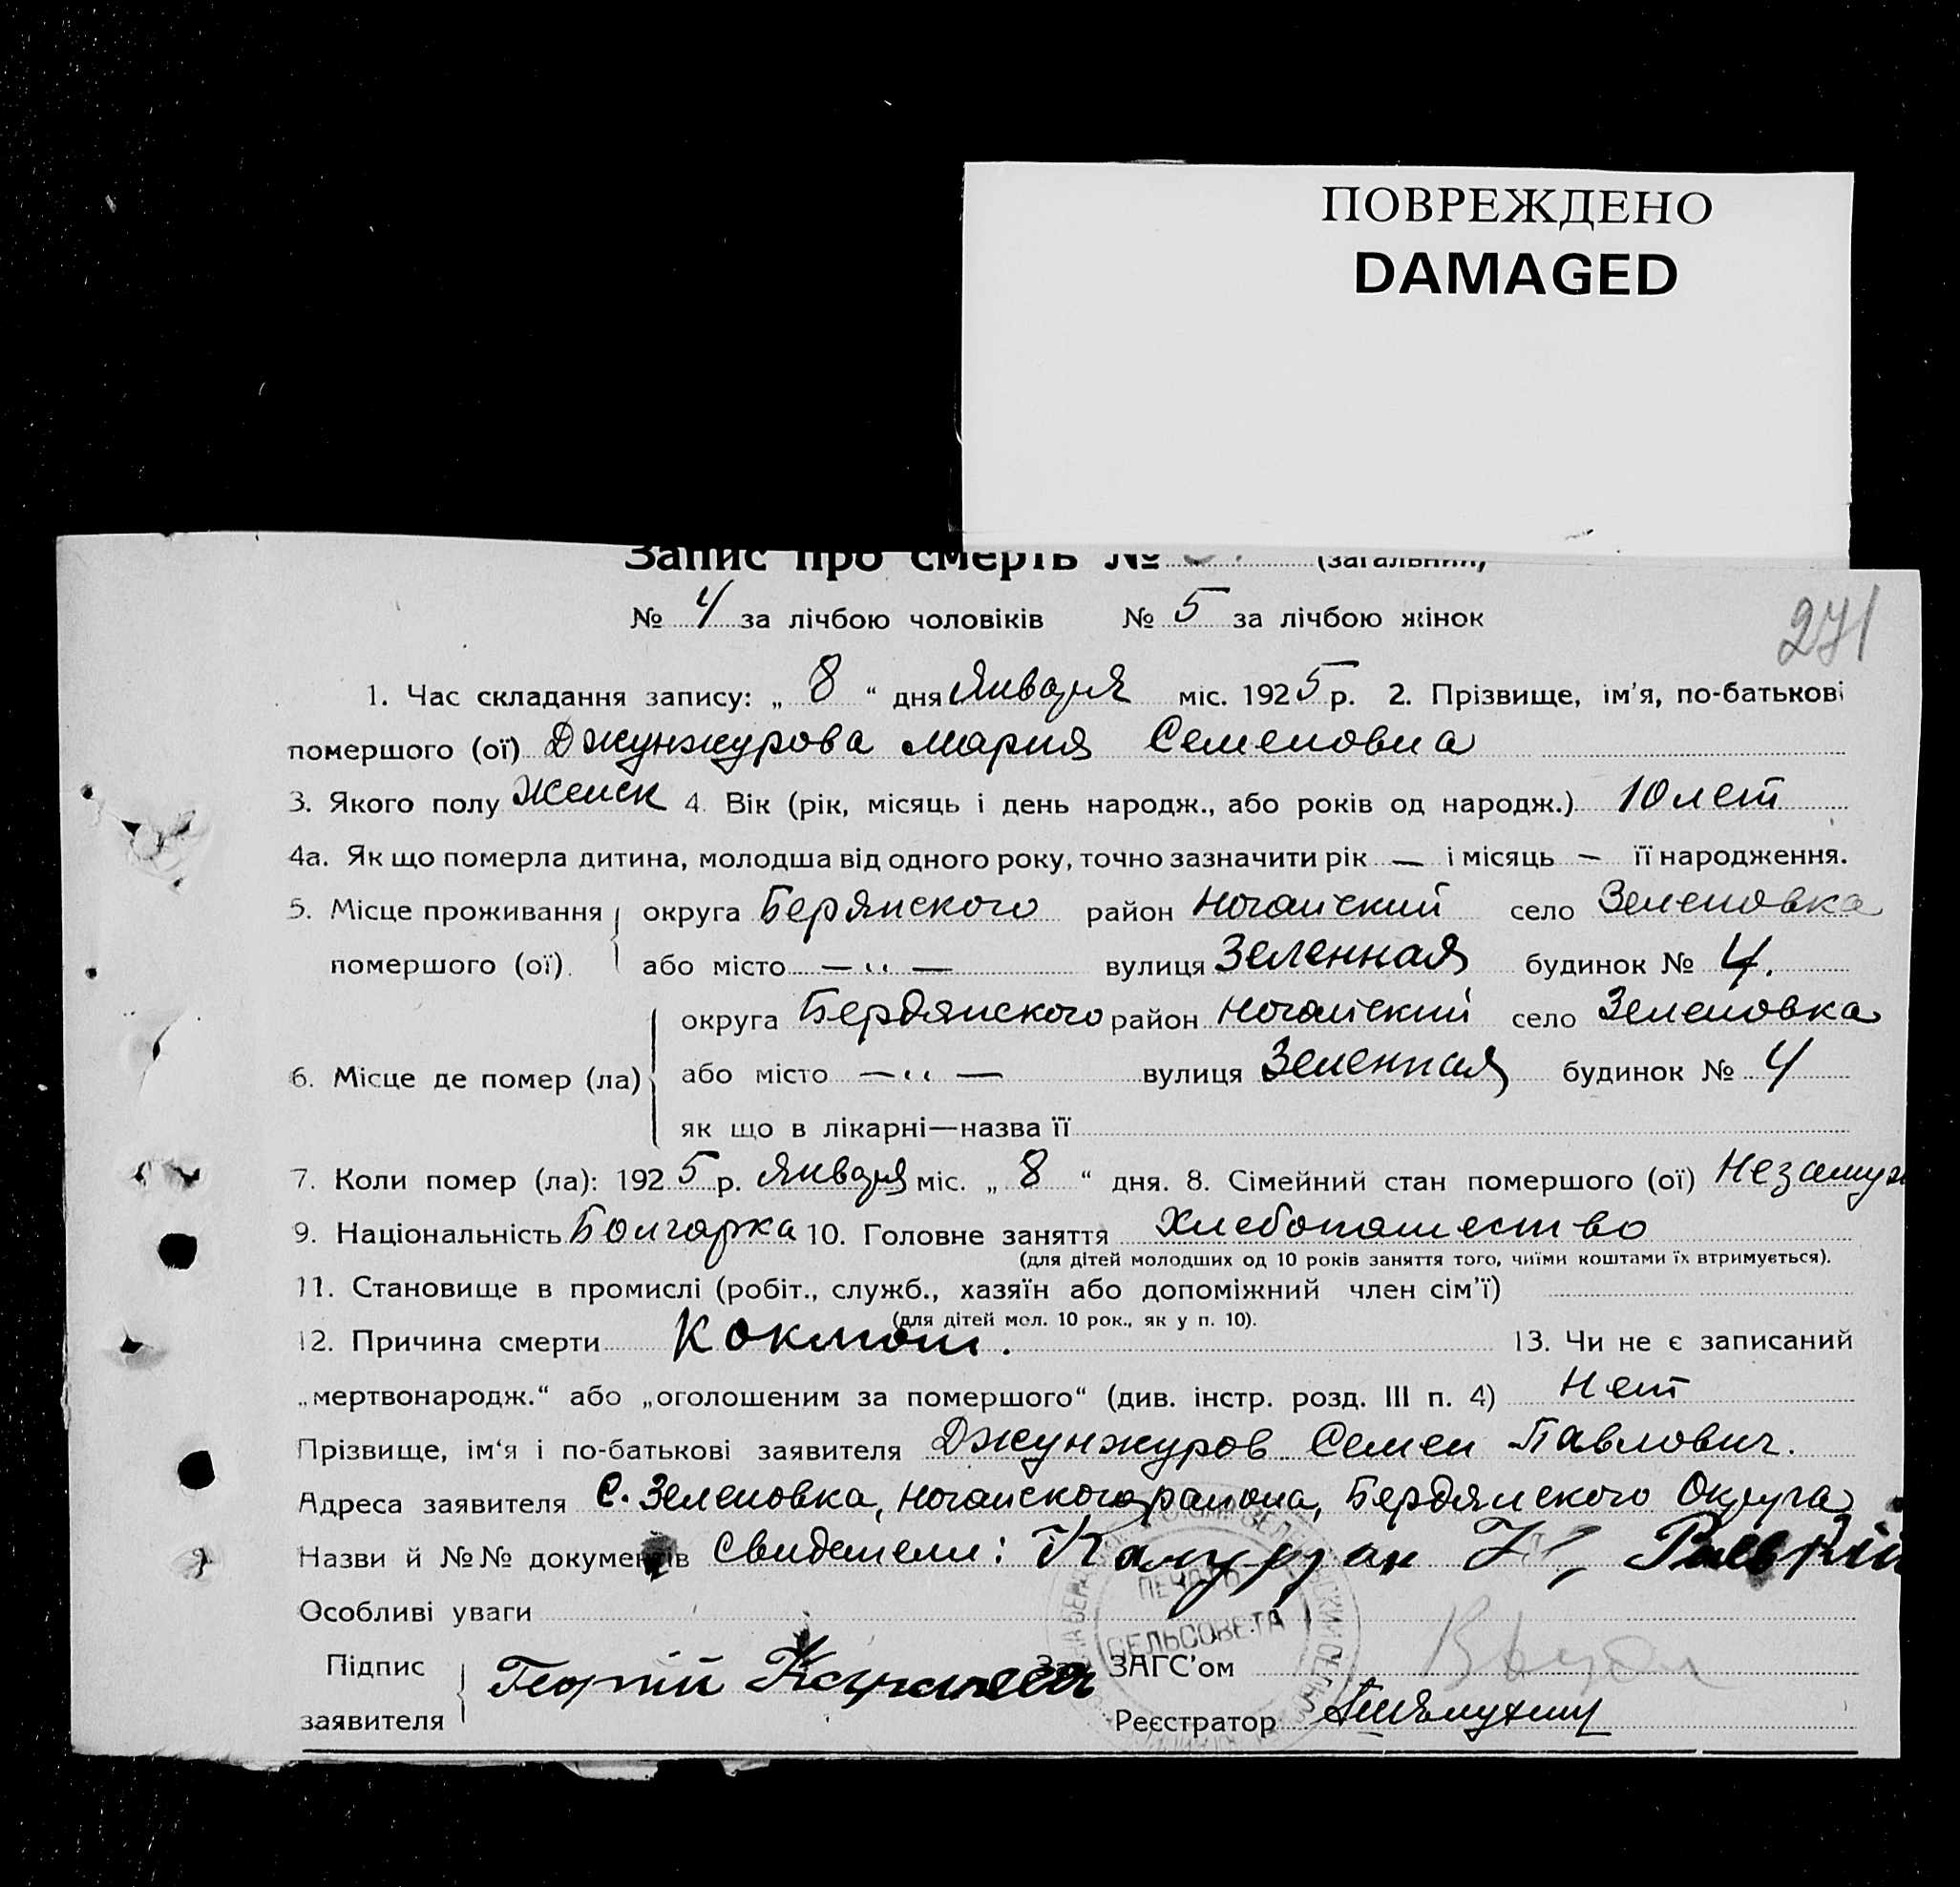 ПОВРЕЖДЕНО
DAMAGED
Запис про смерть № (загальний)
№ 4 за лічбою чоловіків № 5 за лічбою жінок
271
1. Час складання запису: „ 8 “ дня Января міс. 1925 р. 2. Прізвище, ім'я, по-батькові
помершого (ої) Джунжурова Мария Семеновна
3. Якого полу Женск 4. Вік (рік, місяць і день народж., або років од народж.) 10 лет
4а. Як що померла дитина, молодша від одного року, точно зазначити рік — і місяць — її народження.
5. Місце проживання округа Берянского район Ногайский село Зеленовка
помершого (ої). або місто — „ — вулиця Зеленная будинок № 4.
округа Бердянского район Ногайский село Зеленовка
6. Місце де помер (ла) або місто — „ — вулиця Зеленная будинок № 4
як що в лікарні—назва її
7. Коли помер (ла): 1925 р. Января міс. „ 8 “ дня. 8. Сімейний стан помершого (ої) Незамуж
9. Національність Болгарка 10. Головне заняття Хлебопашество
(для дітей молодших од 10 років заняття того, чиїми коштами їх втримується).
11. Становище в промислі (робіт., служб., хазяїн або допоміжний член сім'ї)
(для дітей мол. 10 рок., як у п. 10).
12. Причина смерти Коклюш. 13. Чи не є записаний
„мертвонародж.“ або „оголошеним за помершого“ (див. інстр. розд. III п. 4) Нет
Прізвище, ім'я і по-батькові заявителя Джунжуров Семен Павлович.
Адреса заявителя С. Зеленовка, Ногайского района, Бердянского Округа
Назви й №№ документів Свидетели:
ПЕЧАТЬ
Особливі уваги
СЕЛЬСОВЕТА
Підпис Георгій Зав. ЗАГС'ом
заявителя Реєстратор